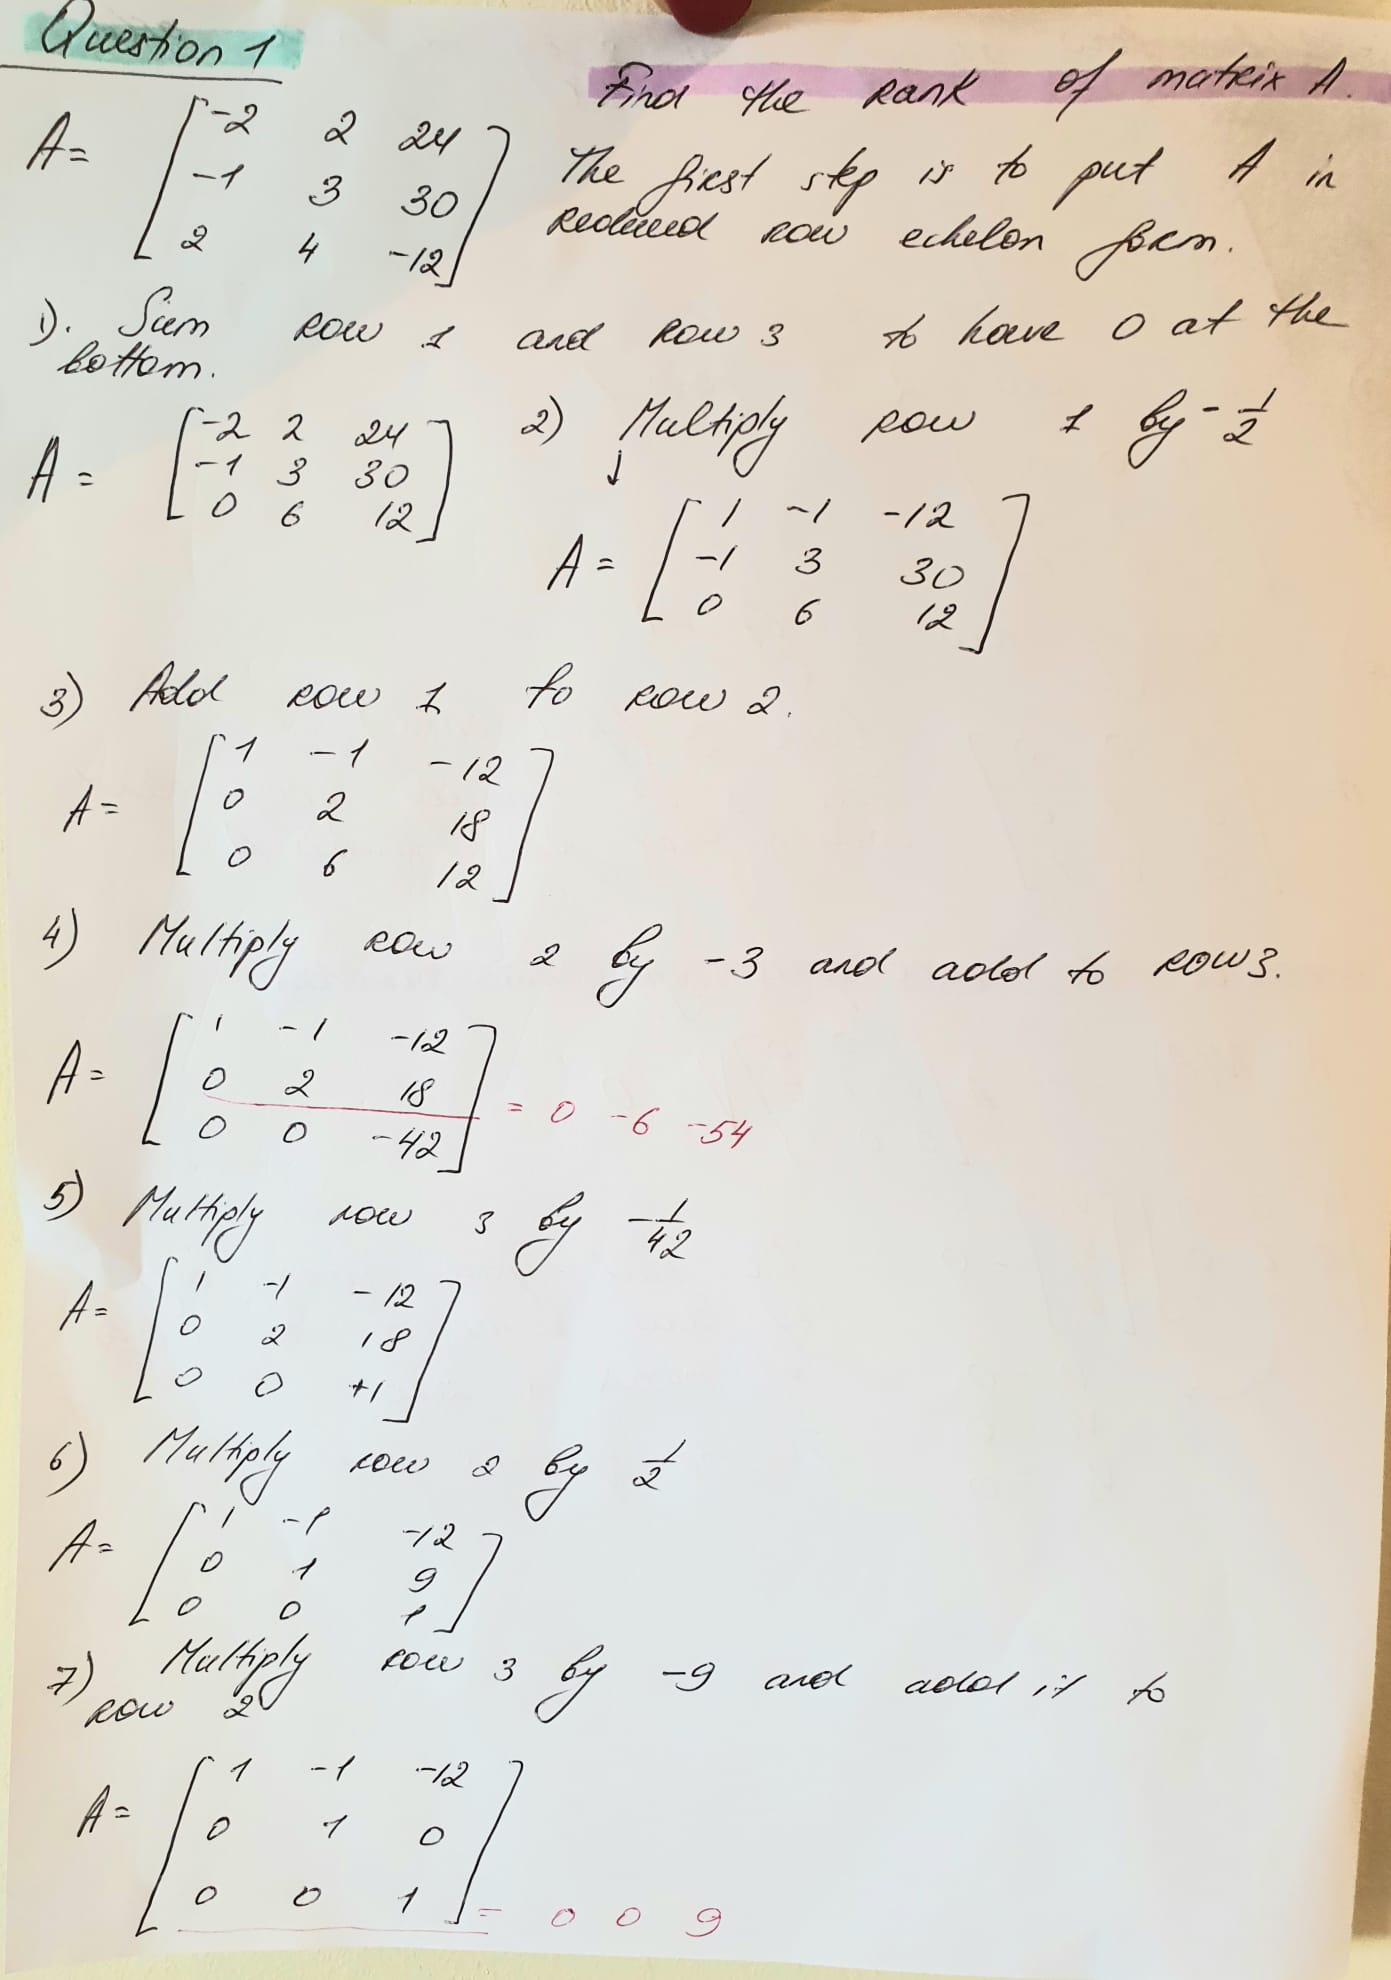 Question 1
Find the rank of matrix A.
A= [ -2 2 24
-1 3 30
2 4 -12 ]
The first step is to put A in
reduced row echelon form.
1). Sum row 1 and row 3 to have 0 at the
bottom.
A = [ -2 2 24
-1 3 30
0 6 12 ]
2) Multiply row 1 by - 1/2
↓
A = [ 1 -1 -12
-1 3 30
0 6 12 ]
3) Add row 1 to row 2.
A= [ 1 -1 -12
0 2 18
0 6 12 ]
4) Multiply row 2 by -3 and add to row 3.
A= [ 1 -1 -12
0 2 18 ] = 0 -6 -54
0 0 -42 ]
5) Multiply row 3 by - 1/42
A= [ 1 -1 -12
0 2 18
0 0 +1 ]
6) Multiply row 2 by 1/2
A= [ 1 -1 -12
0 1 9
0 0 1 ]
7) Multiply row 3 by -9 and add it to
row 2
A= [ 1 -1 -12
0 1 0
0 0 1 ] = 0 0 9